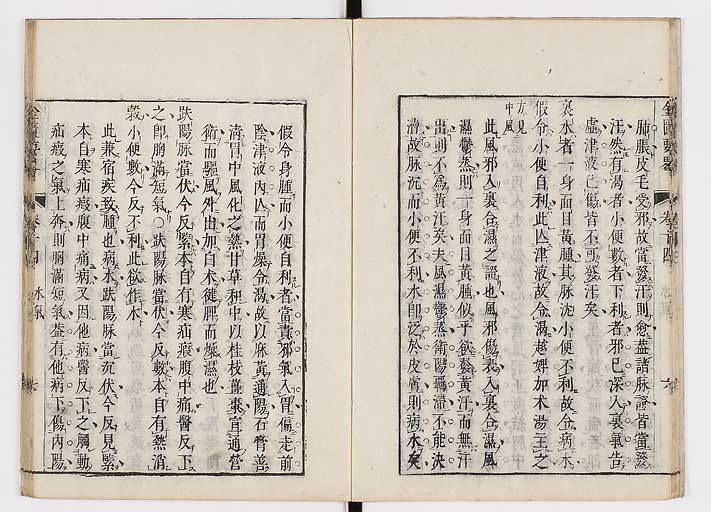 肺脹皮毛受邪故當發汗則愈蓋諸脉證皆當發
汗然有渴者小便數者下利者邪已深入裏氣告
虛津液已傷皆不可發汗矣
裏水者一身面目黃腫其脉沈小便不利故令病水
假令小便自利此亾津液故令渴越婢加术湯主之
方見
中風
此風邪入裏合濕之證也風邪傷表入裏合濕風
濕鬱蒸則一身面目黃腫似乎欲發黃汗而無汗
出則不為黃汗矣夫風濕鬱蒸衛陽壅滯不能決
瀆故脉沉而小便不利水即泛於皮膚則病水矣
假令身腫而小便自利者當責邪氣入胃偏走前
陰津液內亾而胃燥令渴故以麻黃通陽石膏善
淸胃中風化之熱甘草和中以桂枝薑棗宣通營
衛而驅風外出加白术健脾而燥濕也
趺陽脉當伏今反緊本自有寒疝瘕腹中痛醫反下
之即胸滿短氣○趺陽脉當伏今反數本自有熱消
穀小便數今反不利此欲作水
此兼宿疾致腫也病水趺陽脉當沉伏今反見緊
本自寒疝瘕腹中痛病又因他病醫反下之觸動
疝瘕之氣上奔則胸滿短氣葢有他病下傷內陽